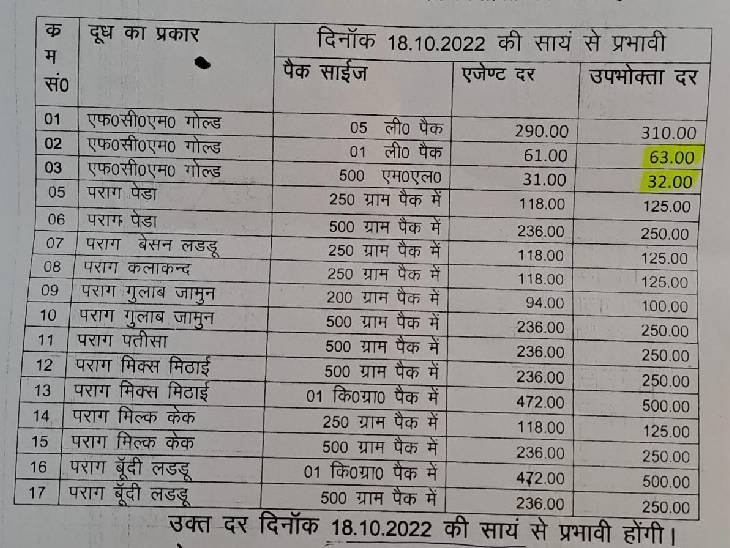 क्रम सं0 दूध का प्रकार दिनॉक 18.10.2022 की सायं से प्रभावी
पैक साईज एजेण्ट दर उपभोक्ता दर
01 एफ0सी0एम0 गोल्ड 05 ली0 पैक 290.00 310.00
02 एफ0सी0एम0 गोल्ड 01 ली0 पैक 61.00 63.00
03 एफ0सी0एम0 गोल्ड 500 एम0एल0 31.00 32.00
05 पराग पेडा 250 ग्राम पैक में 118.00 125.00
06 पराग पेडा 500 ग्राम पैक में 236.00 250.00
07 पराग बेसन लडडू 250 ग्राम पैक में 118.00 125.00
08 पराग कलाकन्द 250 ग्राम पैक में 118.00 125.00
09 पराग गुलाब जामुन 200 ग्राम पैक में 94.00 100.00
10 पराग गुलाब जामुन 500 ग्राम पैक में 236.00 250.00
11 पराग पतीसा 500 ग्राम पैक में 236.00 250.00
12 पराग मिक्स मिठाई 500 ग्राम पैक में 236.00 250.00
13 पराग मिक्स मिठाई 01 कि0ग्रा0 पैक में 472.00 500.00
14 पराग मिल्क केक 250 ग्राम पैक में 118.00 125.00
15 पराग मिल्क केक 500 ग्राम पैक में 236.00 250.00
16 पराग बूँदी लडडू 01 कि0ग्रा0 पैक में 472.00 500.00
17 पराग बूँदी लडडू 500 ग्राम पैक में 236.00 250.00
उक्त दर दिनॉक 18.10.2022 की सायं से प्रभावी होंगी।